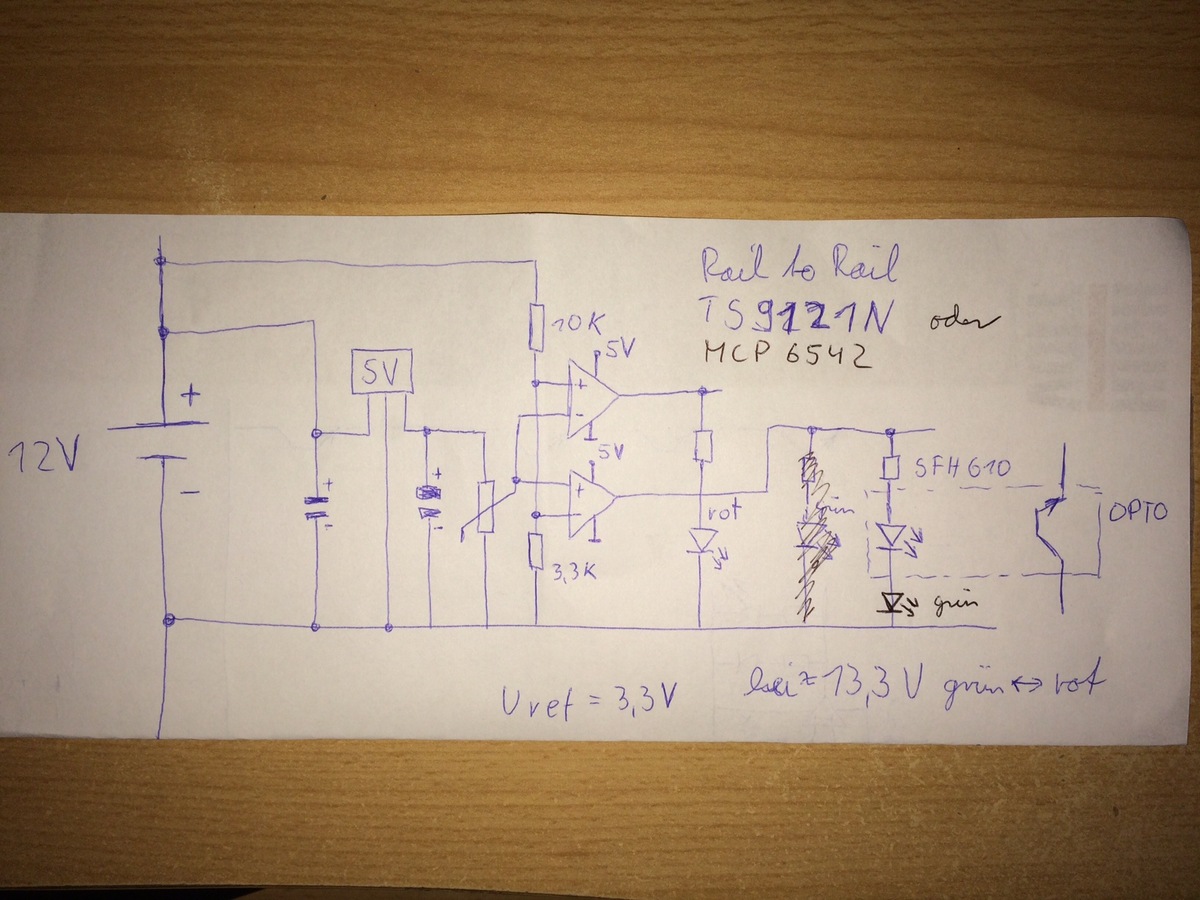 Rail to Rail
TS9121N oder
MCP 6542
10K
5V
5V
+
+
-
12V
-
5V
+
+
-
-
+
-
3,3K
rot
grün
SFH 610
OPTO
grün
Uref = 3,3V
bei ≈ 13,3V grün ↔ rot